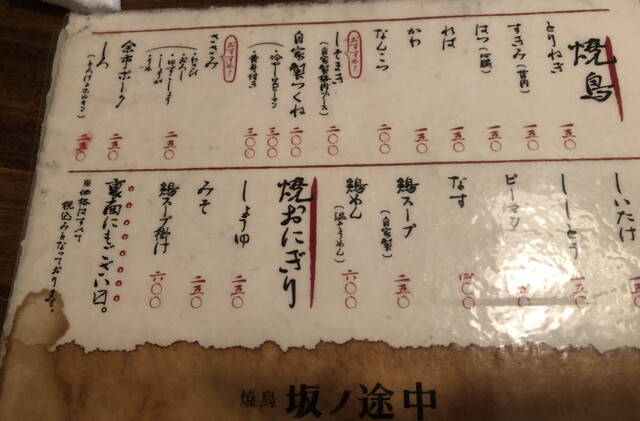 焼鳥
とりねぎ 一五〇
すきみ(首肉) 一五〇
はつ(心臓) 一五〇
ればー 一五〇
かわ 一五〇
なんこつ 二〇〇
おすすめ!
しそまき(自家製梅肉ソース) 二〇〇
自家製つくね 二〇〇
・冷やしピーマン 三〇〇
・黄身付き 三〇〇
おすすめ!
ささみ
・わさび
・おろし
・ゆずこしょう
・しょうが
・うめ
二五〇
余市ポーク 二五〇
しろ(とんけつホルモン) 二五〇
しいたけ
ししとう 二五〇
ピーマン 二五〇
なす 四〇〇
鶏スープ(自家製) 二〇〇
鶏めん(温そうめん) 六〇〇
焼おにぎり
しょうゆ 二五〇
みそ 二五〇
鶏スープ掛け 六〇〇
裏面にもござい〼。
※価格はすべて
税込みとなっております。
焼鳥 坂ノ途中